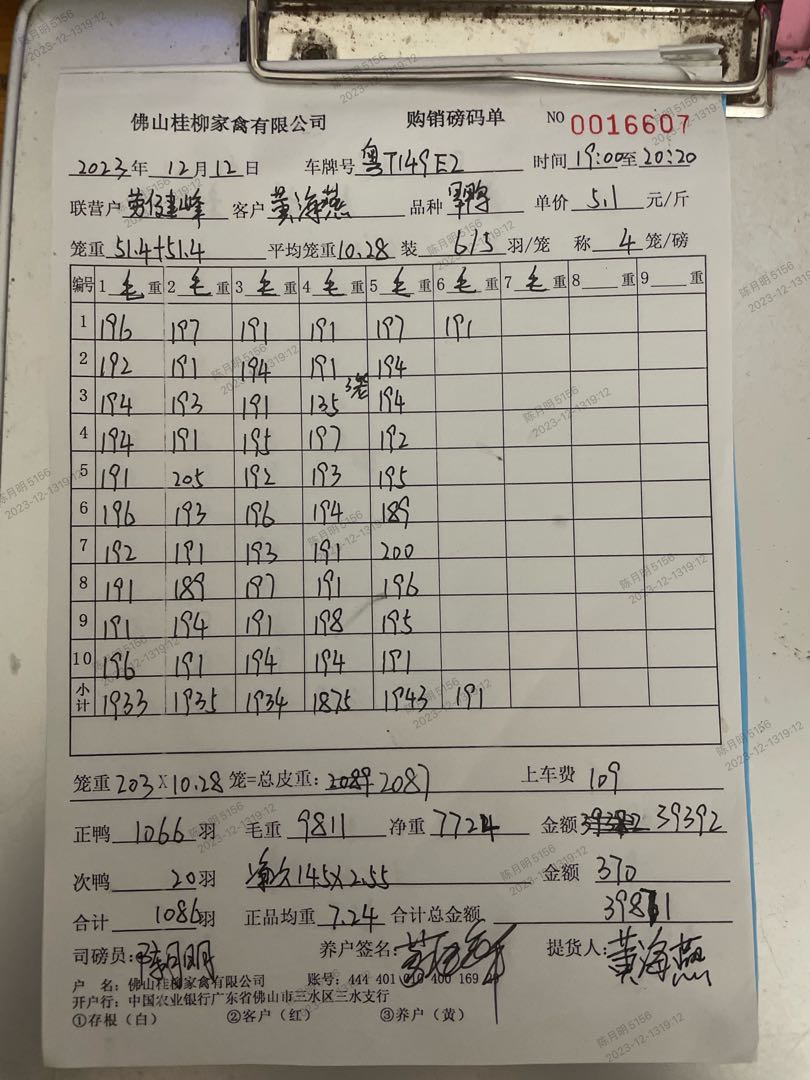 佛山桂柳家禽有限公司 购销磅码单 NO 0016607
2023年 12月12日 车牌号 粤T149E2 时间 19:00至20:20
联营户 客户 黄海燕 品种 单价 5.1 元/斤
笼重 51.4+51.4 平均笼重 10.28 装 6/5 羽/笼 称 4 笼/磅
编号 1 毛 重 2 毛 重 3 毛 重 4 毛 重 5 毛 重 6 毛 重 7 毛 重 8 重 9 重
1 196 197 191 191 197 191
2 192 191 194 191 194
3 194 193 191 135 3笼 194
4 194 191 195 197 192
5 191 205 192 193 195
6 196 193 196 194 189
7 192 191 193 191 200
8 191 189 197 191 196
9 191 194 191 198 195
10 196 191 194 194 191
小计 1933 1935 1934 1875 1943 191
笼重 203 X 10.28 笼=总皮重: 2089 2087 上车费 109
正鸭 1066 羽 毛重 9811 净重 7724 金额 39392
次鸭 20羽 145X2.55 金额 370
合计 1086羽 正品均重 7.24 合计总金额 39871
司磅员: 陈月明 养户签名: 提货人: 黄海燕
户 名: 佛山桂柳家禽有限公司 账号: 444 401 010 400 169
开户行: 中国农业银行广东省佛山市三水区三水支行
①存根(白) ②客户(红) ③养户(黄)
陈月明 5156
2023-12-13 19:12